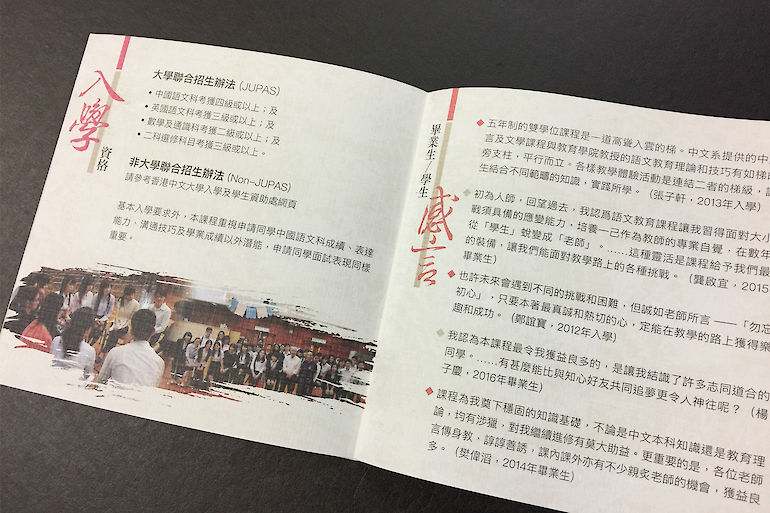 入學
資格
大學聯合招生辦法 (JUPAS)
• 中國語文科考獲四級或以上；及
• 英國語文科考獲三級或以上；及
• 數學及通識科考獲二級或以上；及
• 二科選修科目考獲三級或以上。
非大學聯合招生辦法 (Non-JUPAS)
請參考香港中文大學入學及學生資助處網頁
基本入學要求外，本課程重視申請同學中國語文科成績、表達
能力、溝通技巧及學業成績以外潛能，申請同學面試表現同樣
重要。
畢業生 / 學生
感言
五年制的雙學位課程是一道高聳入雲的梯。中文系提供的中
言及文學課程與教育學院教授的語文教育理論和技巧有如梯
旁支柱，平行而立。各樣教學體驗活動是連結二者的梯級，讓
生結合不同範疇的知識，實踐所學。（張子軒，2013年入學）
初為人師，回望過去，我認為語文教育課程讓我習得面對大小
戰須具備的應變能力，培養一己作為教師的專業自覺，在數年
從「學生」蛻變成「老師」。……這種靈活是課程給予我們最
的裝備，讓我們能面對教學路上的各種挑戰。（龔啟宜，2015
畢業生）
也許未來會遇到不同的挑戰和困難，但誠如老師所言——「勿忘
初心」，只要本著最真誠和熱切的心，定能在教學的路上獲得樂
趣和成功。（鄭誼寶，2012年入學）
我認為本課程最令我獲益良多的，是讓我結識了許多志同道合的
同學。……有甚麼能比與知心好友共同追夢更令人神往呢？（楊
子慶，2016年畢業生）
課程為我奠下穩固的知識基礎，不論是中文本科知識還是教育理
論，均有涉獵，對我繼續進修有莫大助益。更重要的是，各位老師
言傳身教，諄諄善誘，課內課外亦有不少親炙老師的機會，獲益良
多。（樊偉滔，2014年畢業生）